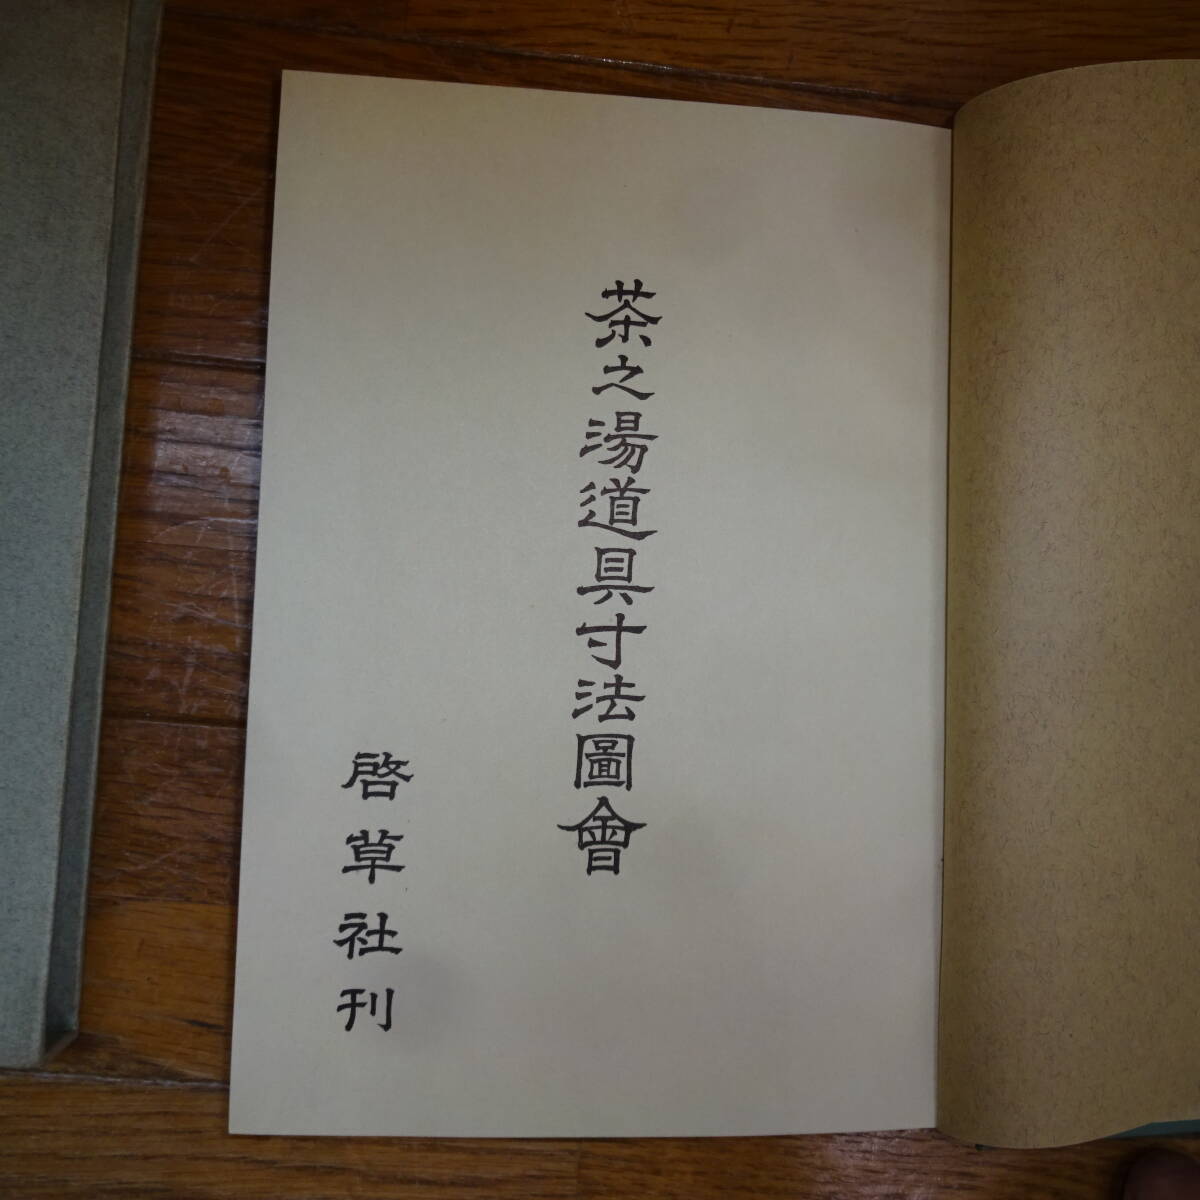 茶之湯道具寸法圖會
啓草社刊